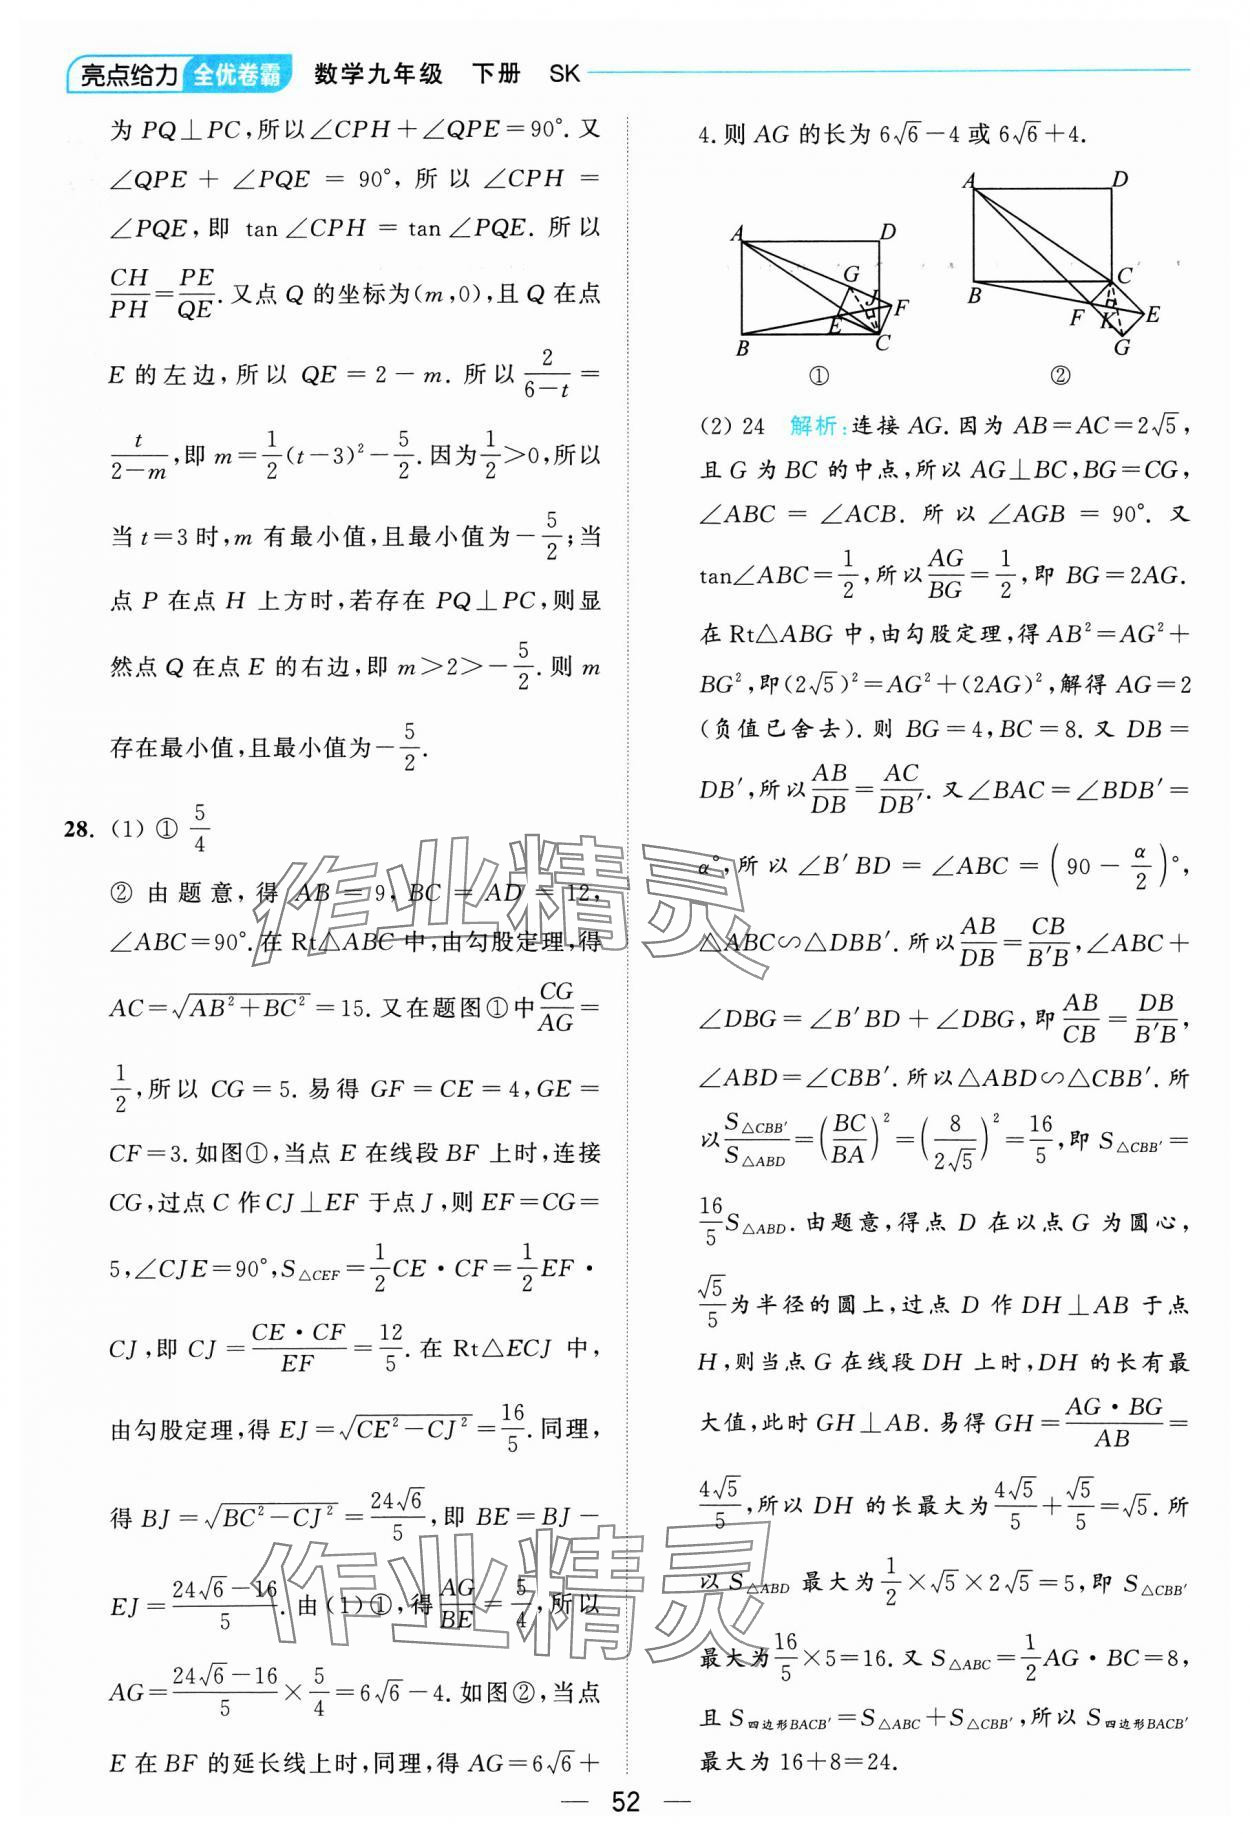 亮点给力 全优卷霸 数学九年级 下册 SK
为 PQ⊥PC,所以∠CPH+∠QPE=90°.又
∠QPE + ∠PQE = 90°, 所 以 ∠CPH =
∠PQE,即 tan∠CPH = tan∠PQE. 所以
CH/PH=PE/QE.又点 Q 的坐标为(m,0),且 Q 在点
E 的左边,所以 QE=2-m. 所以 2/(6-t)=
t/(2-m),即 m=1/2(t-3)²-5/2.因为1/2>0,所以
当 t=3 时,m 有最小值,且最小值为-5/2;当
点 P 在点 H 上方时,若存在 PQ⊥PC,则显
然点 Q 在点 E 的右边,即 m>2>-5/2.则 m
存在最小值,且最小值为-5/2.
28. (1) ① 5/4
② 由题意,得 AB = 9, BC = AD = 12,
∠ABC=90°.在 Rt△ABC 中,由勾股定理,得
AC=√(AB²+BC²)=15.又在题图①中CG/AG=
1/2,所以 CG=5. 易得 GF=CE=4,GE=
CF=3.如图①,当点 E 在线段 BF 上时,连接
CG,过点 C 作 CJ⊥EF 于点 J,则 EF=CG=
5,∠CJE=90°,S△CEF=1/2CE·CF=1/2EF·
CJ,即 CJ=CE·CF/EF=12/5.在 Rt△ECJ 中,
由勾股定理,得 EJ=√(CE²-CJ²)=16/5.同理,
得 BJ=√(BC²-CJ²)=24√6/5,即 BE=BJ-
EJ=(24√6-16)/5.由(1)①,得AG/BE=5/4,所以
AG=(24√6-16)/5×5/4=6√6-4.如图②,当点
E 在 BF 的延长线上时,同理,得 AG=6√6+
4.则 AG 的长为 6√6-4 或 6√6+4.
A D G J F E B C
①
A D B C F K E G
②
(2) 24 解析:连接 AG.因为 AB=AC=2√5,
且 G 为 BC 的中点,所以 AG⊥BC,BG=CG,
∠ABC = ∠ACB. 所以 ∠AGB = 90°. 又
tan∠ABC=1/2,所以AG/BG=1/2,即 BG=2AG.
在 Rt△ABG 中,由勾股定理,得 AB²=AG²+
BG²,即(2√5)²=AG²+(2AG)²,解得 AG=2
(负值已舍去).则 BG=4,BC=8.又 DB=
DB′,所以AB/DB=AC/DB′.又∠BAC=∠BDB′=
α°,所以 ∠B′BD=∠ABC=(90-α/2)°,
△ABC∽△DBB′.所以AB/DB=CB/B′B,∠ABC+
∠DBG=∠B′BD+∠DBG,即AB/CB=DB/B′B,
∠ABD=∠CBB′.所以△ABD∽△CBB′.所
以S△CBB′/S△ABD=(BC/BA)²=(8/2√5)²=16/5,即 S△CBB′=
16/5S△ABD.由题意,得点 D 在以点 G 为圆心,
√5/5为半径的圆上,过点 D 作 DH⊥AB 于点
H,则当点 G 在线段 DH 上时,DH 的长有最
大值,此时 GH⊥AB.易得 GH=AG·BG/AB=
4√5/5,所以 DH 的长最大为4√5/5+√5/5=√5.所
以 S△ABD 最大为1/2×√5×2√5=5,即 S△CBB′
最大为16/5×5=16.又 S△ABC=1/2AG·BC=8,
且 S四边形BACB′=S△ABC+S△CBB′,所以 S四边形BACB′
最大为 16+8=24.
作业精灵
作业精灵
— 52 —